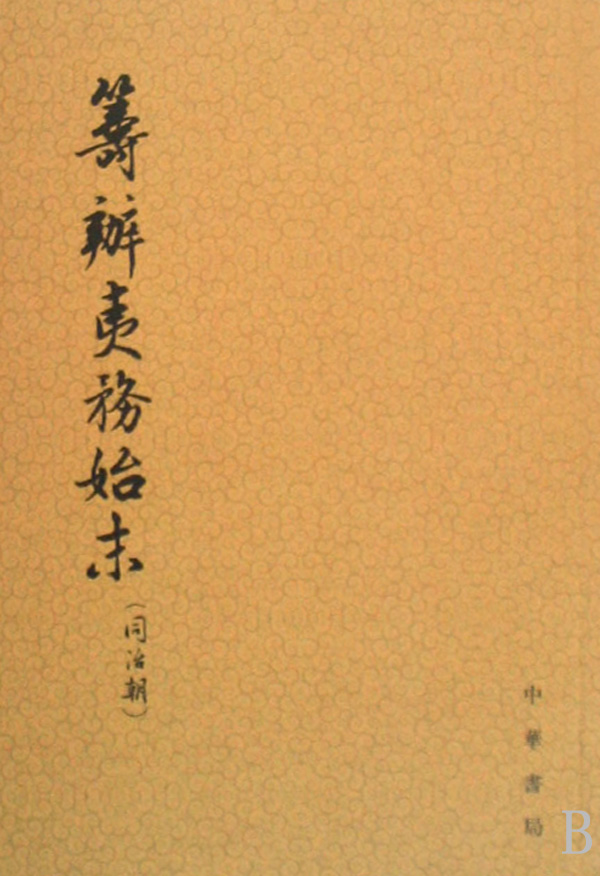 籌辦夷務始末
(同治朝)
中華書局
B